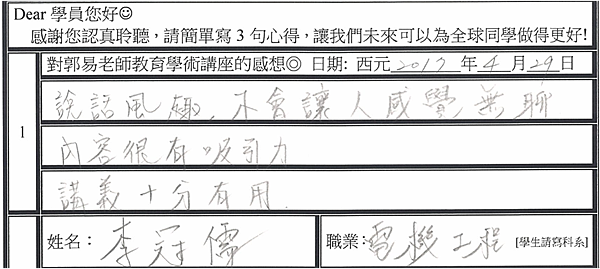 Dear 學員您好☺
感謝您認真聆聽，請簡單寫 3 句心得，讓我們未來可以為全球同學做得更好!
對郭易老師教育學術講座的感想◎ 日期: 西元 2017 年 4 月 29 日
1
說話風趣，不會讓人感覺無聊
內容很有吸引力
講義十分有用.
姓名： 李冠儒 職業： 電機工程 [學生請寫科系]